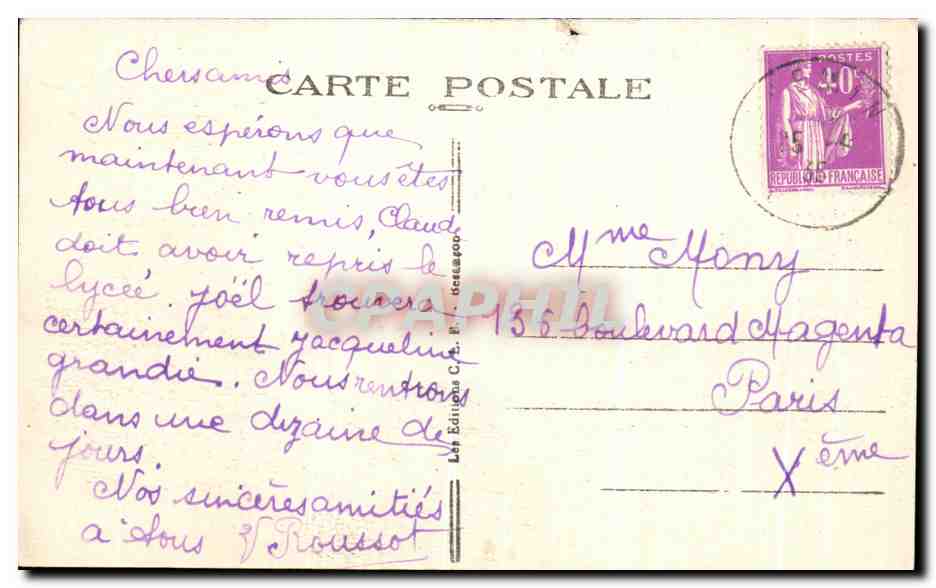 CARTE POSTALE
Chers amis
Nous espérons que
maintenant vous êtes
tous bien remis, Claude
doit avoir repris le
lycée. Joël trouvera
certainement Jacqueline
grandie. Nous rentrons
dans une dizaine de
jours.
Nos sincères amitiés
à tous Roussot
Les Editions C. L. B. - Besançon
POSTES
40c
REPUBLIQUE FRANÇAISE
15 -4
35
Mme Mony
136 boulevard Magenta
Paris
Xème
CPAPHIL